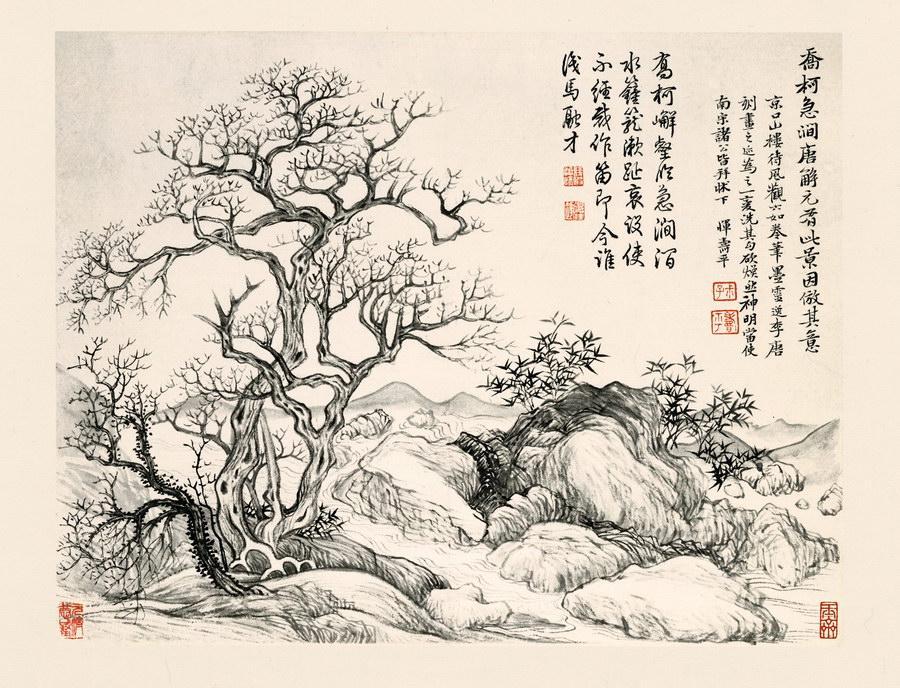 喬柯急澗唐解元有此景因倣其意
京口山樓待風觀六如卷筆墨靈逸李唐
刻畫之迹為之一變洗其勾斫煥然神明當使
南宗諸公皆拜牀下 惲壽平
高柯嶰壑 急澗
水 漱趾哀設使
不經裁作笛即今誰
識馬融才